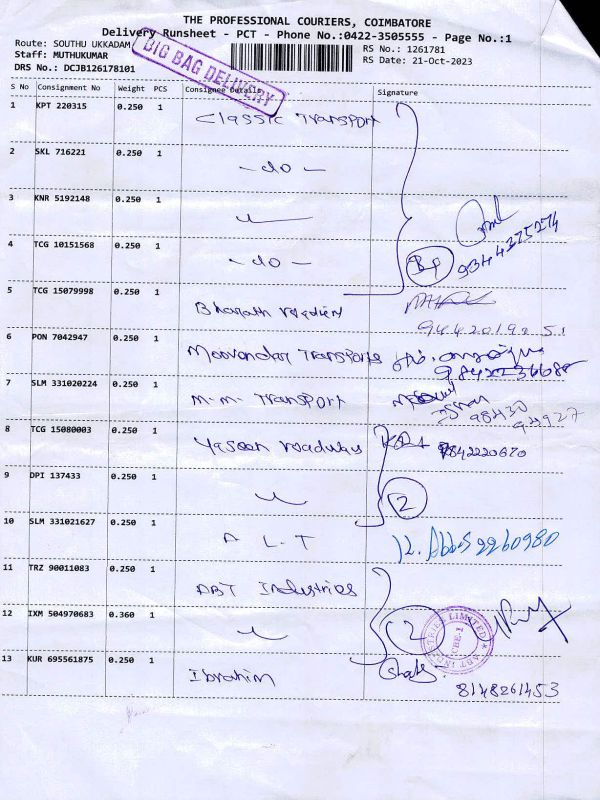 THE PROFESSIONAL COURIERS, COIMBATORE
Delivery Runsheet - PCT - Phone No.:0422-3505555 - Page No.:1
Route: SOUTHU UKKADAM
Staff: MUTHUKUMAR
DRS No.: DCJB126178101
RS No.: 1261781
RS Date: 21-Oct-2023
BIG BAG DELIVERY
S No Consignment No Weight PCS Consignee Details Signature
1 KPT 220315 0.250 1 Classic Transport
2 SKL 716221 0.250 1 - do -
3 KNR 5192148 0.250 1
4 TCG 10151568 0.250 1 - do -
9344375274
5 TCG 15079998 0.250 1 Bharath
9442019251
6 PON 7042947 0.250 1 Moovendar Transports
7 SLM 331020224 0.250 1 M.M. Transport
98430
94927
8 TCG 15080003 0.250 1 Yaseen roadways 9842220670
9 DPI 137433 0.250 1
2
10 SLM 331021627 0.250 1 A L T K. Abbas 2260980
11 TRZ 90011083 0.250 1 ABT Industries
12 IXM 504970683 0.360 1 2
ABT INDUSTRIES LIMITED
CBE-1
13 KUR 695561875 0.250 1 Ibrahim
8148261453